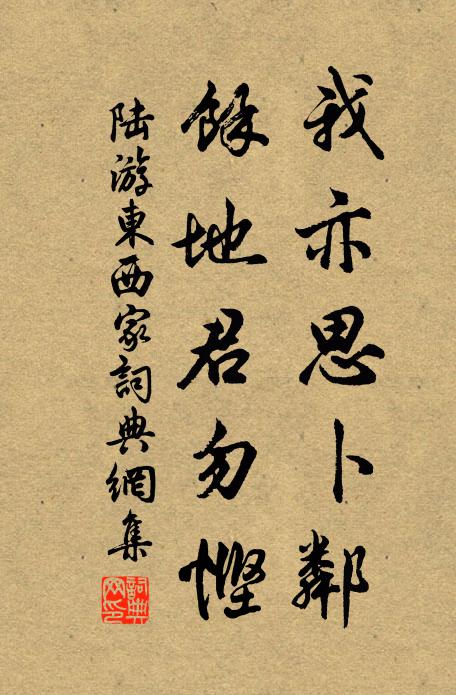 我亦思卜鄰
餘地君勿慳
陆游東西家詞典網集
詞典
网印